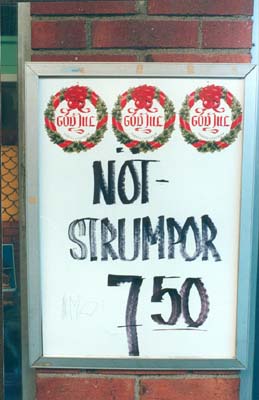 GOD JUL GOD JUL GOD JUL
NÖT-
STRUMPOR
7 50